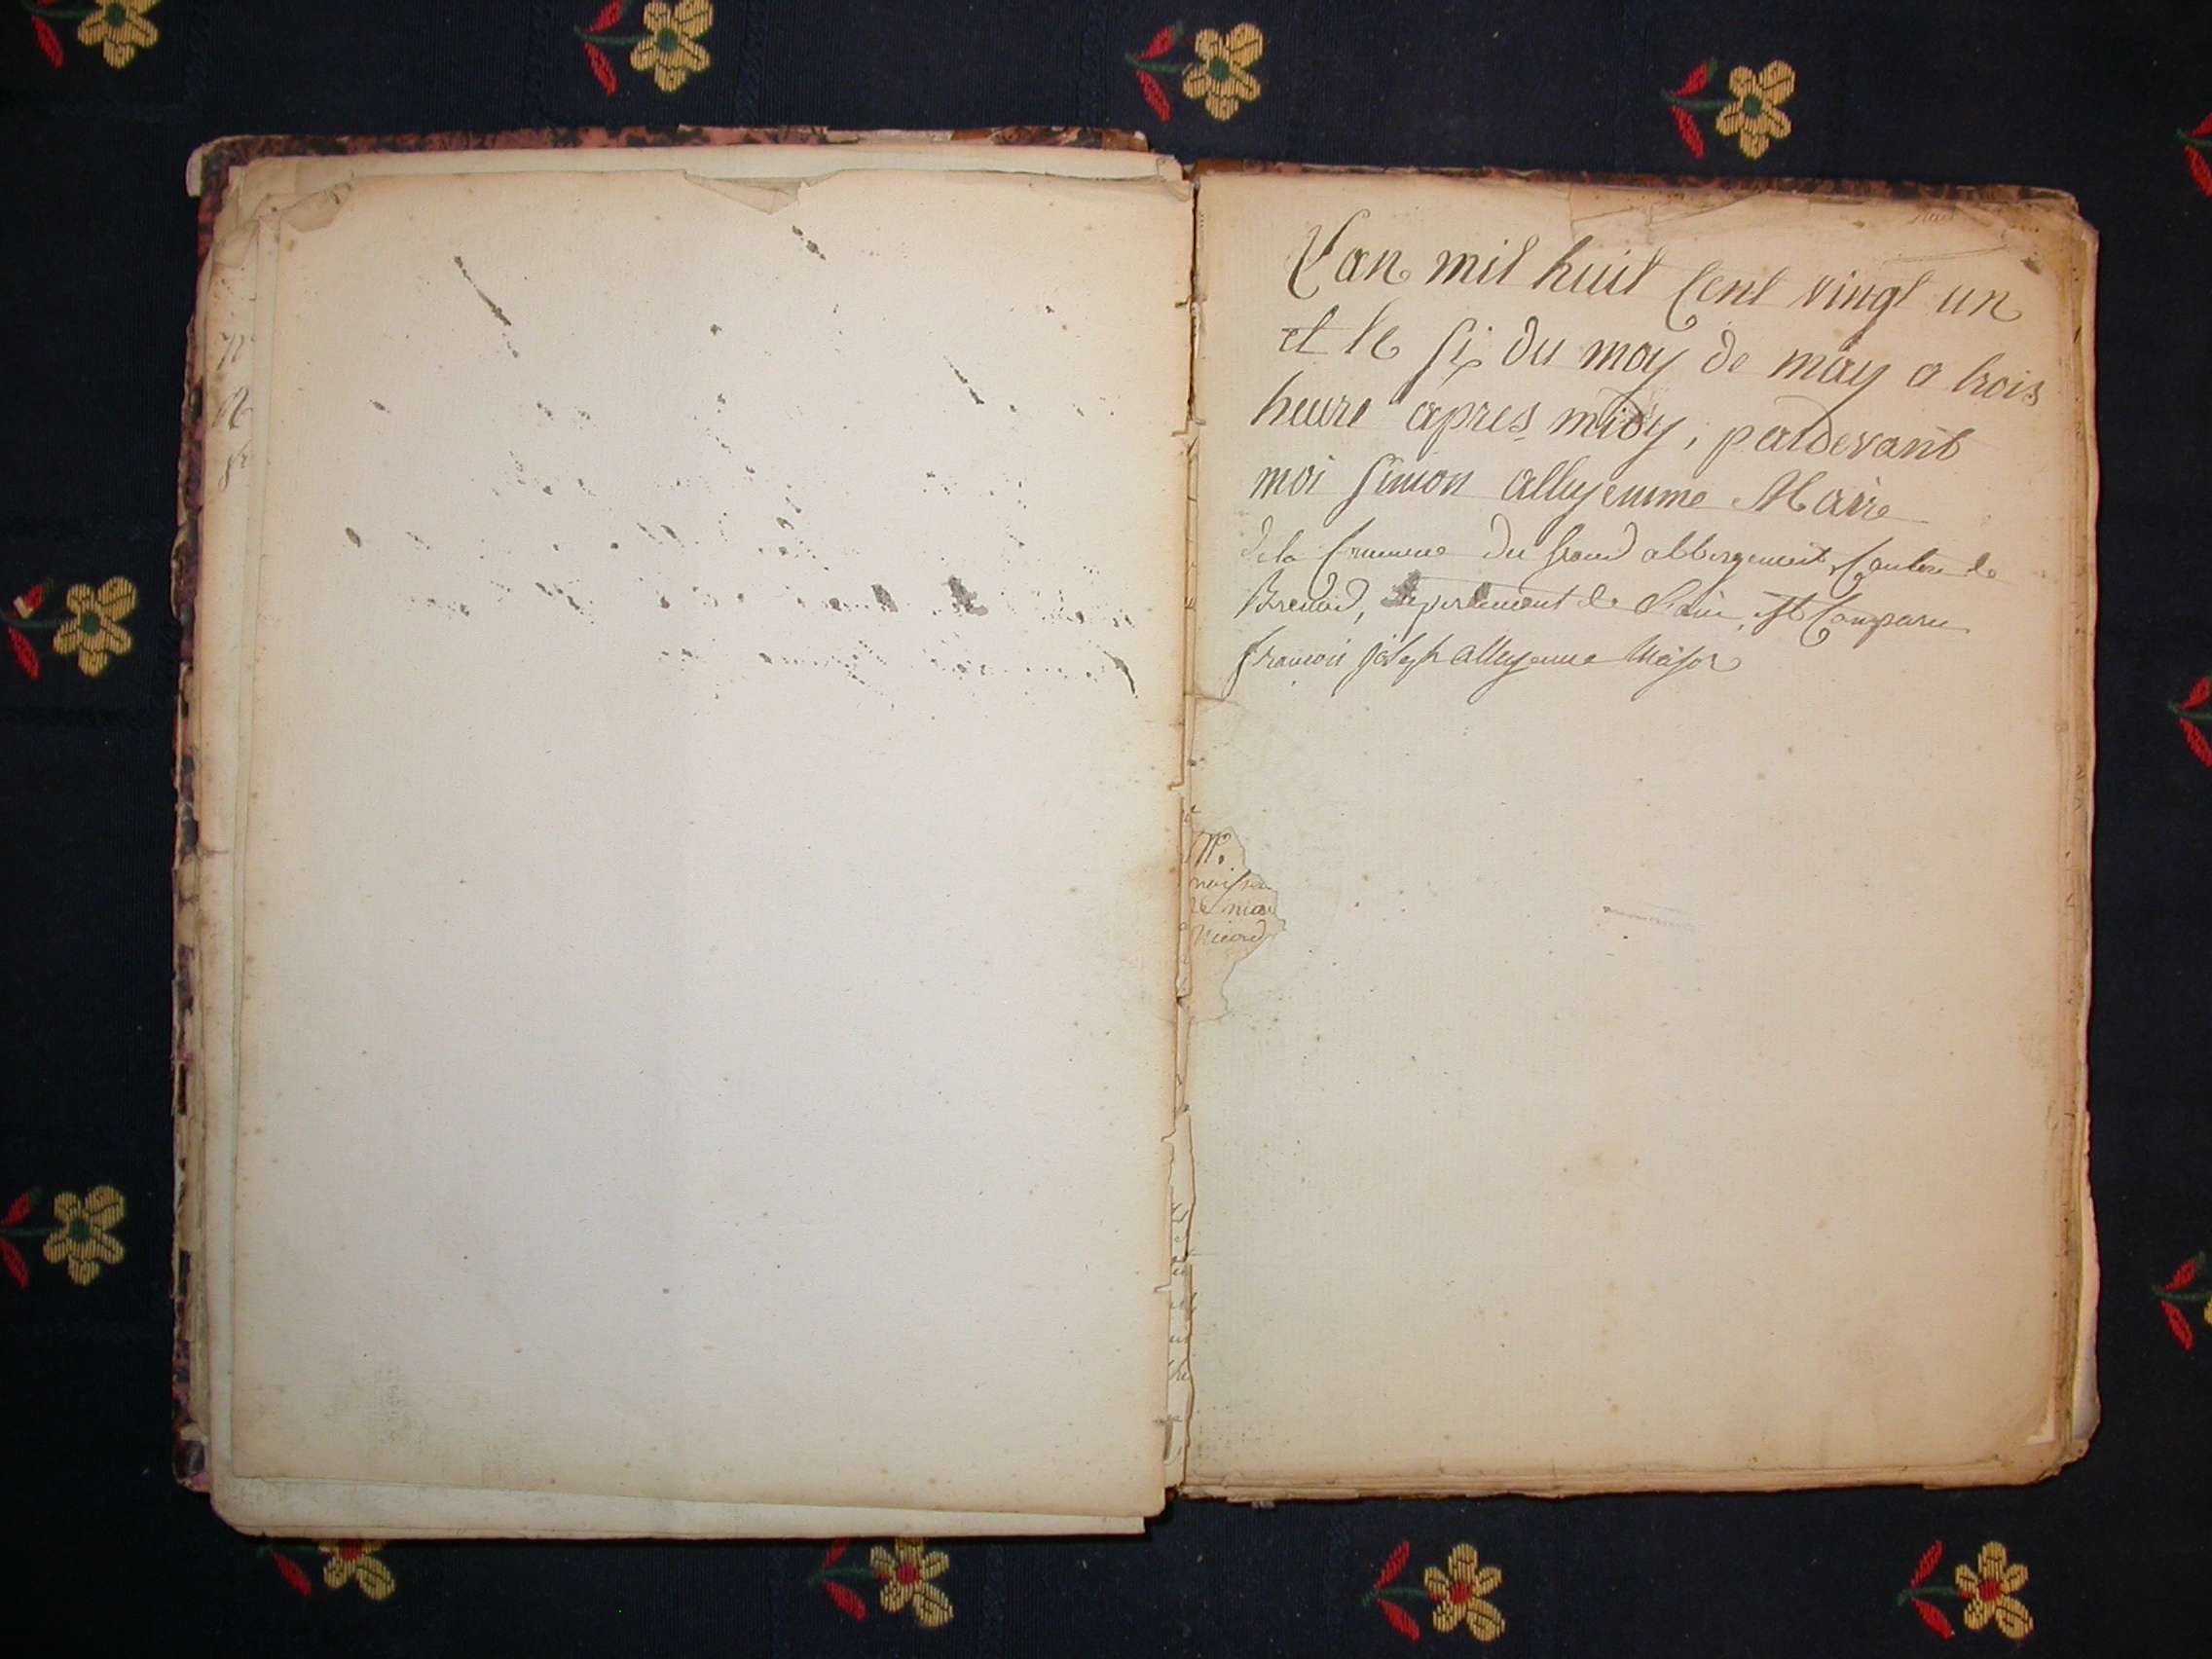 L'an mil huit Cent vingt un
et le six du moy de may a trois
heure apres midy, pardevant
moi Simon allyemme Maire
de la Commune du Grand abbergement Canton de
Brenod, departement de l'ain, est Comparu
francois joseph allyemme Major
N°.
naissan
de nico
Nicod